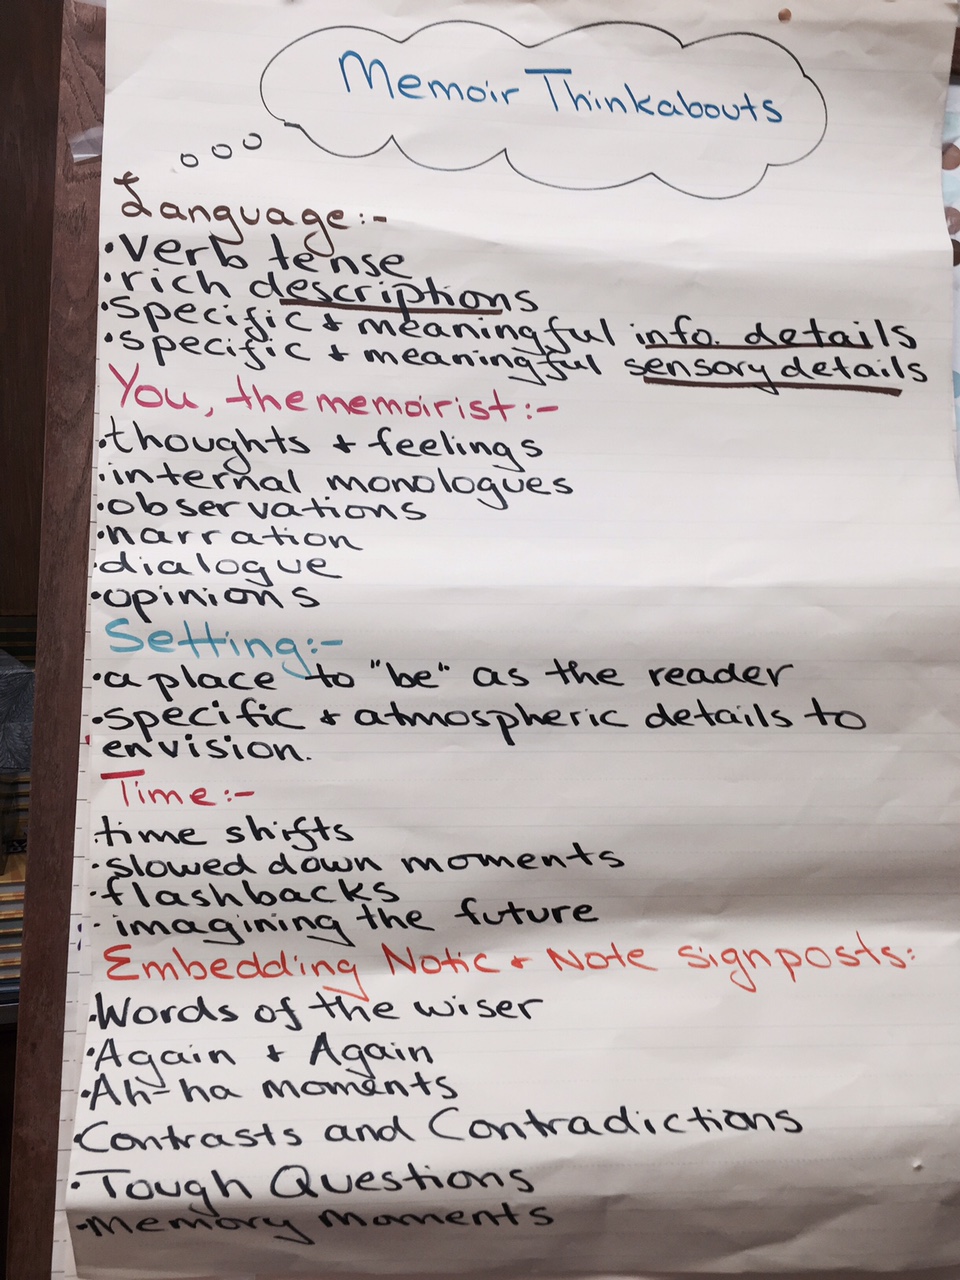 Memoir Thinkabouts
Language:-
•verb tense
•rich descriptions
•specific + meaningful info. details
•specific + meaningful sensory details
You, the memoirist:-
•thoughts + feelings
•internal monologues
•observations
•narration
•dialogue
•opinions
Setting:-
•a place to "be" as the reader
•specific + atmospheric details to
envision.
Time:-
•time shifts
•slowed down moments
•flashbacks
•imagining the future
Embedding Notic + Note signposts:
•Words of the wiser
•Again + Again
•Ah-ha moments
•Contrasts and Contradictions
•Tough Questions
•Memory Moments